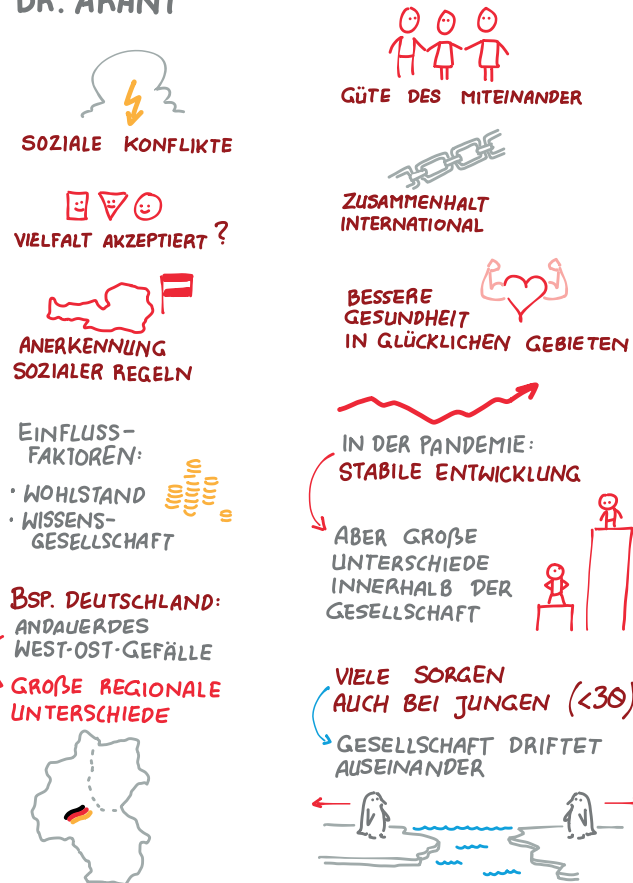 DR. ARANT
SOZIALE KONFLIKTE
VIELFALT AKZEPTIERT?
ANERKENNUNG
SOZIALER REGELN
EINFLUSS-
FAKTOREN:
· WOHLSTAND
· WISSENS-
GESELLSCHAFT
BSP. DEUTSCHLAND:
ANDAUERDES
WEST-OST-GEFÄLLE
GROßE REGIONALE
UNTERSCHIEDE
GÜTE DES MITEINANDER
ZUSAMMENHALT
INTERNATIONAL
BESSERE
GESUNDHEIT
IN GLÜCKLICHEN GEBIETEN
IN DER PANDEMIE:
STABILE ENTWICKLUNG
ABER GROßE
UNTERSCHIEDE
INNERHALB DER
GESELLSCHAFT
VIELE SORGEN
AUCH BEI JUNGEN (<30)
GESELLSCHAFT DRIFTET
AUSEINANDER